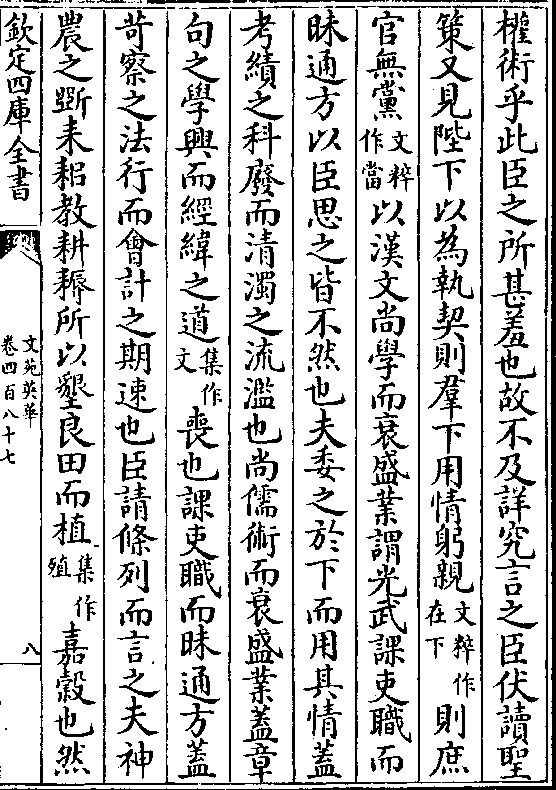 權術乎此臣之所甚羞也故不及詳究言之臣伏讀聖
策又見陛下以為執契則羣下用情躬親文粹作在下則庶
官無黨文粹作當以漢文尚學而衰盛業謂光武課吏職而
昧通方以臣思之皆不然也夫委之於下而用其情蓋
考績之科廢而清濁之流濫也尚儒術而衰盛業蓋章
句之學興而經緯之道集作文喪也課吏職而昧通方蓋
苛察之法行而會計之期速也臣請條列而言之夫神
農之斲耒耜教耕耨所以墾良田而植集作殖嘉穀也然
欽定四庫全書
文苑英華
卷四百八十七
八